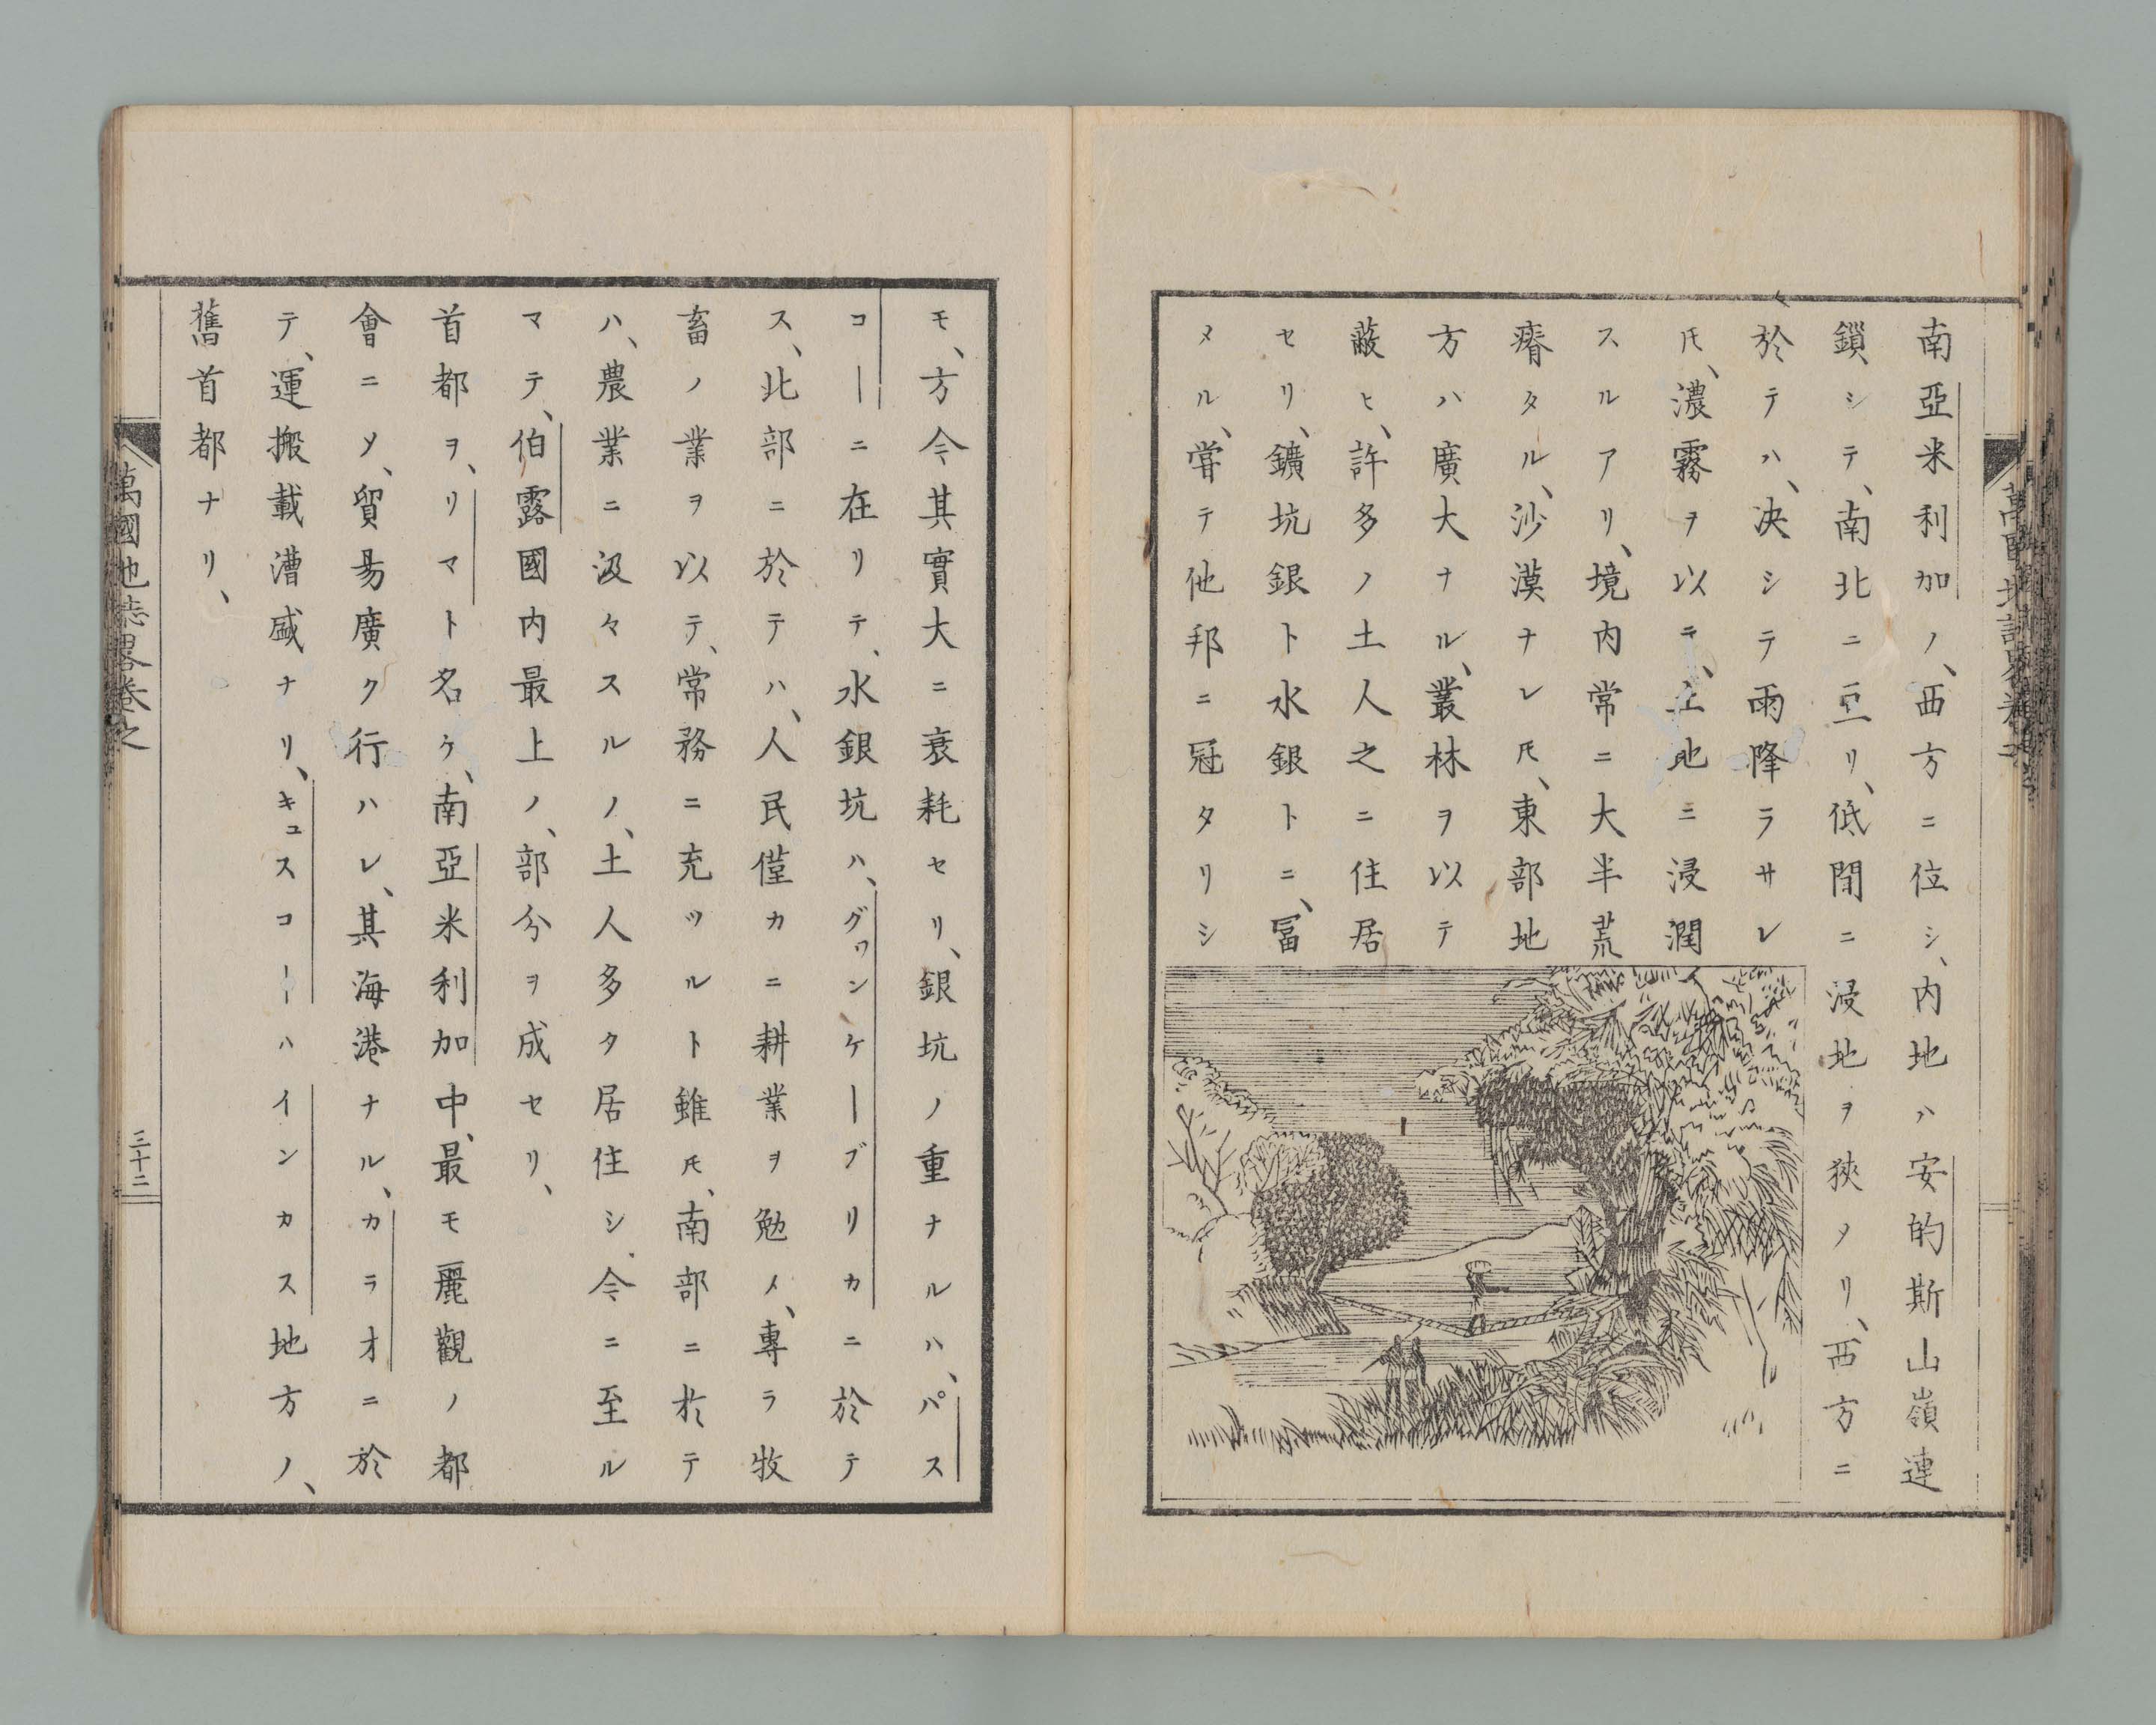 南亞米利加ノ、西方ニ位シ、内地ハ安的斯山嶺連
鎖シテ、南北ニ亘リ、低閒ニ浸地ヲ狹メリ、西方ニ
於テハ、决シテ雨降ラサレ
𪜈、濃霧ヲ以テ、土地ニ浸潤
スルアリ、境内常ニ大半荒
瘠タル、沙漠ナレ𪜈、東部地
方ハ廣大ナル、叢林ヲ以テ
蔽ヒ、許多ノ土人之ニ住居
セリ、鑛坑銀ト水銀トニ、冨
メル、嘗テ他邦ニ冠タリシ
モ、方今其實大ニ衰耗セリ、銀坑ノ重ナルハ、パス
コーニ在リテ、水銀坑ハ、グワンケーブリカニ於テ
ス、北部ニ於テハ、人民僅カニ耕業ヲ勉メ、專ラ牧
畜ノ業ヲ以テ、常務ニ充ツルト雖𪜈、南部ニ於テ
ハ、農業ニ汲々スルノ、土人多タ居住シ、今ニ至ル
マテ、伯露國内最上ノ、部分ヲ成セリ、
首都ヲ、リマト名ケ、南亞米利加中、最モ麗觀ノ都
會ニメ、貿昜廣ク行ハレ、其海港ナル、カラオニ於
テ、運搬載漕盛ナリ、キュスコーハインカス地方ノ、
舊首都ナリ、
萬國地誌畧卷之
三十二